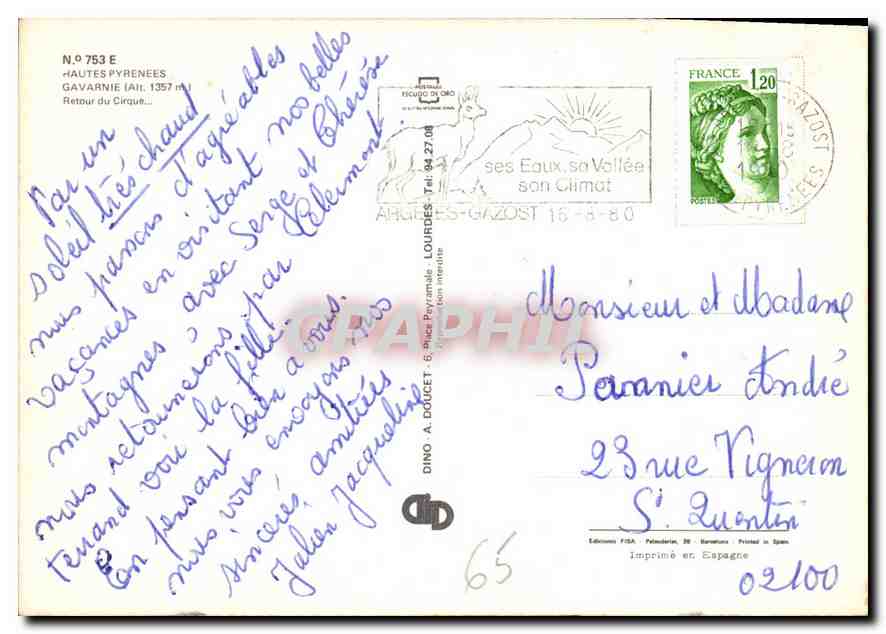 N.º 753 E
HAUTES PYRENEES
GAVARNIE (Alt. 1357 m)
Retour du Cirque...
Par un
soleil très chaud
nous passons d'agréables
vacances en visitant nos belles
montagnes avec Serge et Thérèse
nous retournerons par Clermont
Ferrand voir la fille.
En pensant bien à vous,
nous vous envoyons nos
sincères amitiés
Julien Jacqueline
DINO - A. DOUCET - 6, Place Peyramale - LOURDES - Tel: 94.27.08
Reproduction interdite
POSTALES
ESCUDO DE ORO
ses Eaux, sa Vallée
son Climat
ARGELES-GAZOST 16-8-80
FRANCE 1,20
POSTES
GAZOST
PYRENEES
CPAPHIL
Monsieur et Madame
Pannier André
23 rue Vigneron
St Quentin
02100
Ediciones FISA - Palaudarias, 26 - Barcelona - Printed in Spain
Imprimé en Espagne
65